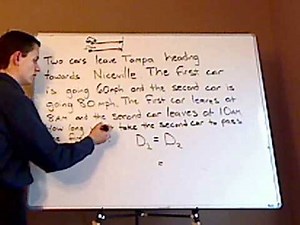 Two cars leave Tampa heading
towards Niceville The first car
is going 60mph and the second car is
going 80mph. The first car leaves at
8AM and the second car leaves at 10AM
How long take the second car to pass
the
D₁ = D₂
=